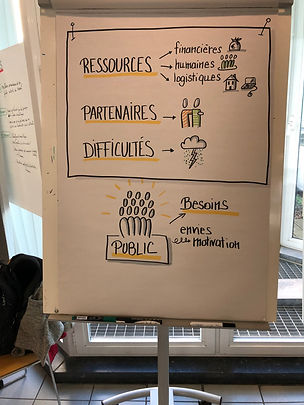 financières
RESSOURCES → humaines
logistiques
PARTENAIRES →
DIFFICULTÉS →
Besoins
envies
PUBLIC motivation